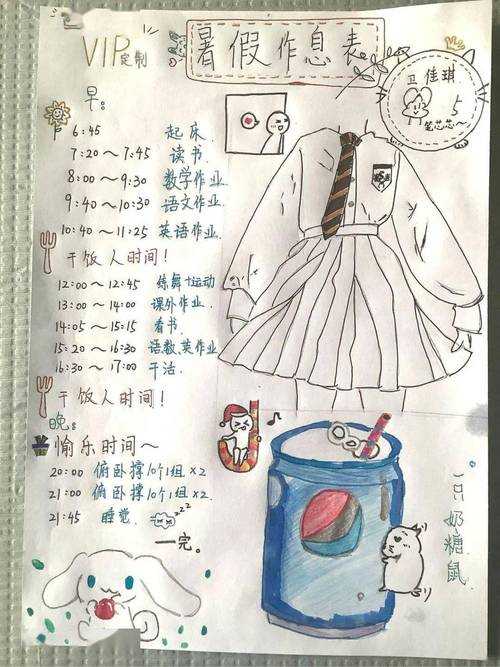 VIP定制
暑假作息表
卫佳琪
5
笔芯芯~
早:
6:45 起床.
7:20~7:45 读书.
8:00~9:30 数学作业.
9:40~10:30 语文作业.
10:40~11:25 英语作业.
干饭人时间!
12:00~12:45 练舞+运动
13:00~14:00 课外作业.
14:05~15:15 看书.
15:20~16:30 语数,英作业
16:30~17:00 干活.
干饭人时间!
晚:
愉乐时间~
20:00 俯卧撑10个1组×2
21:00 俯卧撑10个1组×2.
21:45 睡觉. zzz
一完。
一只奶糖鼠